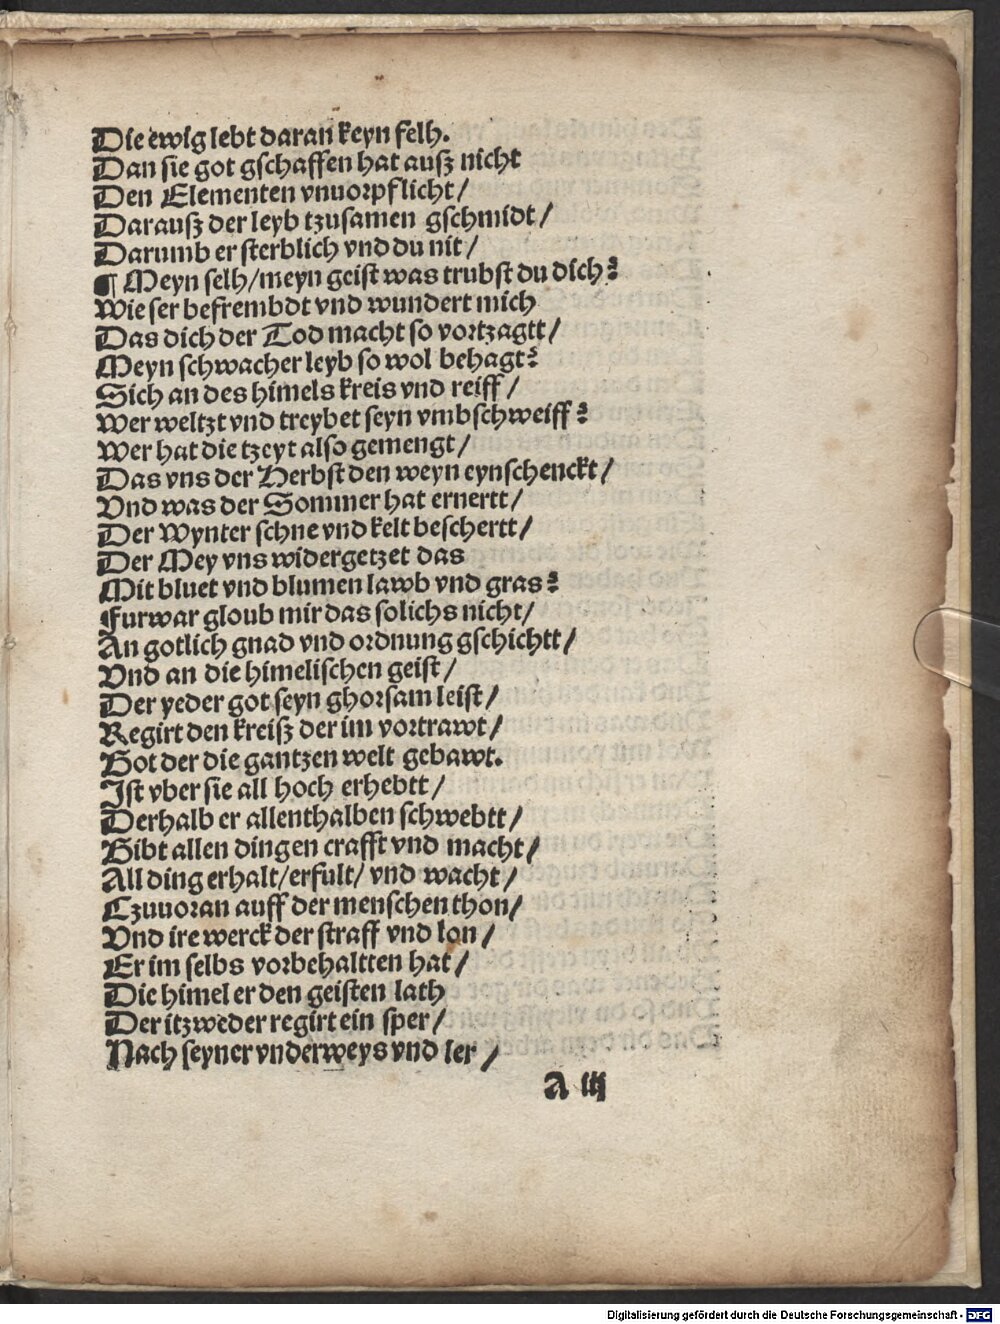 Die ewig lebt daran keyn felh.
Dan sie got gschaffen hat auß nicht
Den Elementen vnuorpflicht/
Darauß der leyb tzusamen gschmidt/
Darumb er sterblich vnd du nit/
¶ Meyn selh/meyn geist was trubst du dich?
Wie ser befrembdt vnd wundert mich
Das dich der Tod macht so vortzagtt/
Meyn schwacher leyb so wol behagt?
Sich an des himels kreis vnd reiff/
Wer weltzt vnd treybet seyn vmbschweiff?
Wer hat die tzeyt also gemengt/
Das vns der Herbst den weyn eynschenckt/
Vnd was der Sommer hat ernertt/
Der Wynter schne vnd kelt beschertt/
Der Mey vns widergetzet das
Mit bluet vnd blumen lawb vnd gras?
Furwar gloub mir das solichs nicht/
An gotlich gnad vnd ordnung gschichtt/
Vnd an die himelischen geist/
Der yeder got seyn ghorsam leist/
Regirt den kreiß der im vortrawt/
Got der die gantzen welt gebawt.
Ist vber sie all hoch erhebtt/
Derhalb er allenthalben schwebtt/
Gibt allen dingen crafft vnd macht/
All ding erhalt/erfult/ vnd wacht/
Czuuoran auff der menschen thon/
Vnd ire werck der straff vnd lon/
Er im selbs vorbehaltten hat/
Die himel er den geisten lath
Der itzweder regirt ein sper/
Nach seyner vnderweys vnd ler/
A iij
Digitalisierung gefördert durch die Deutsche Forschungsgemeinschaft - DFG